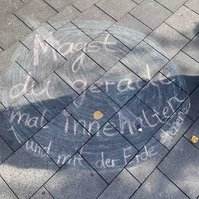 Magst
du gerade
mal innehalten
und mit der Erde